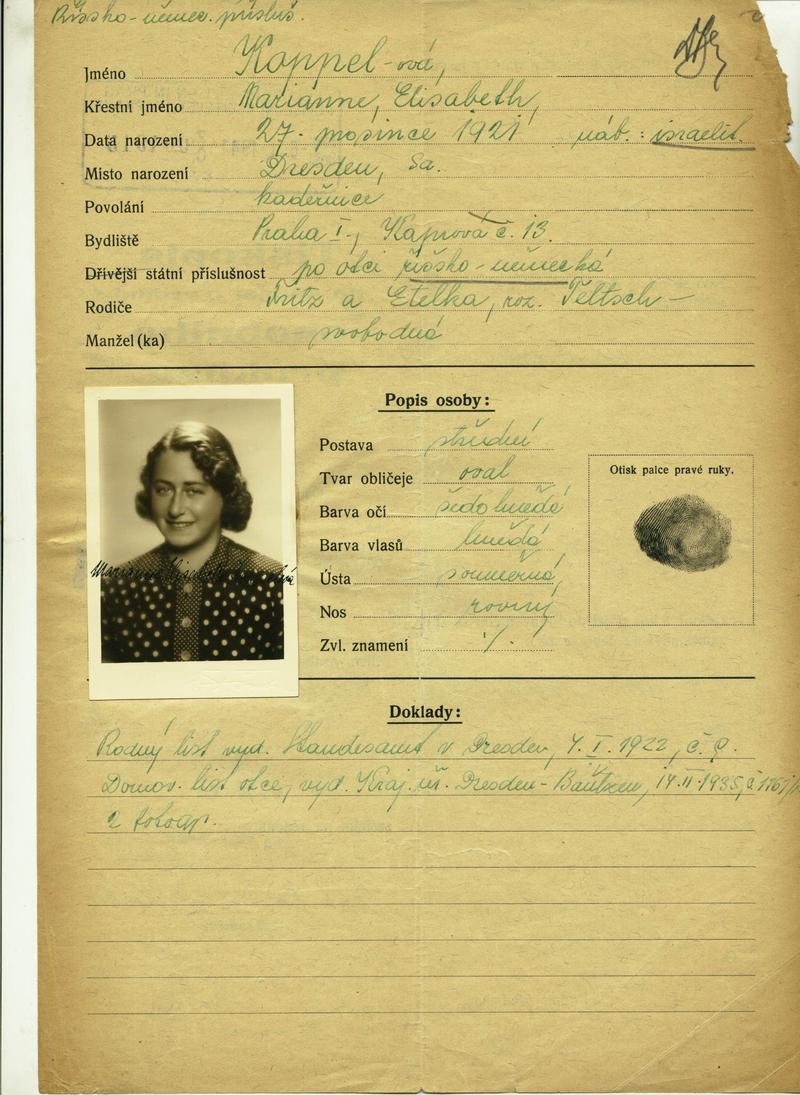 Říšsko-němec. přísluš.
Jméno Koppel-ová,
Křestní jméno Marianne, Elisabeth,
Data narození 27. prosince 1921 náb.: israelit.
Místo narození Dresden, Sa.
Povolání kadeřnice
Bydliště Praha I., Kaprova č. 13.
Dřívější státní příslušnost po otci říšsko-německá
Rodiče Fritz a Etelka, roz. Teltsch-
Manžel(ka) svobodná
Popis osoby:
Postava střední
Tvar obličeje oval
Barva očí šedohnědé
Barva vlasů hnědá
Ústa souměrná
Nos rovný
Zvl. znamení ./.
Otisk palce pravé ruky.
Marianne
Doklady:
Rodný list vyd. Standesamt v Dresden, 4. I. 1922, č. 9.
Domov. list otce, vyd. Kraj. úř. Dresden-Bautzen, 14. II. 1935, č.
2 fotogr.